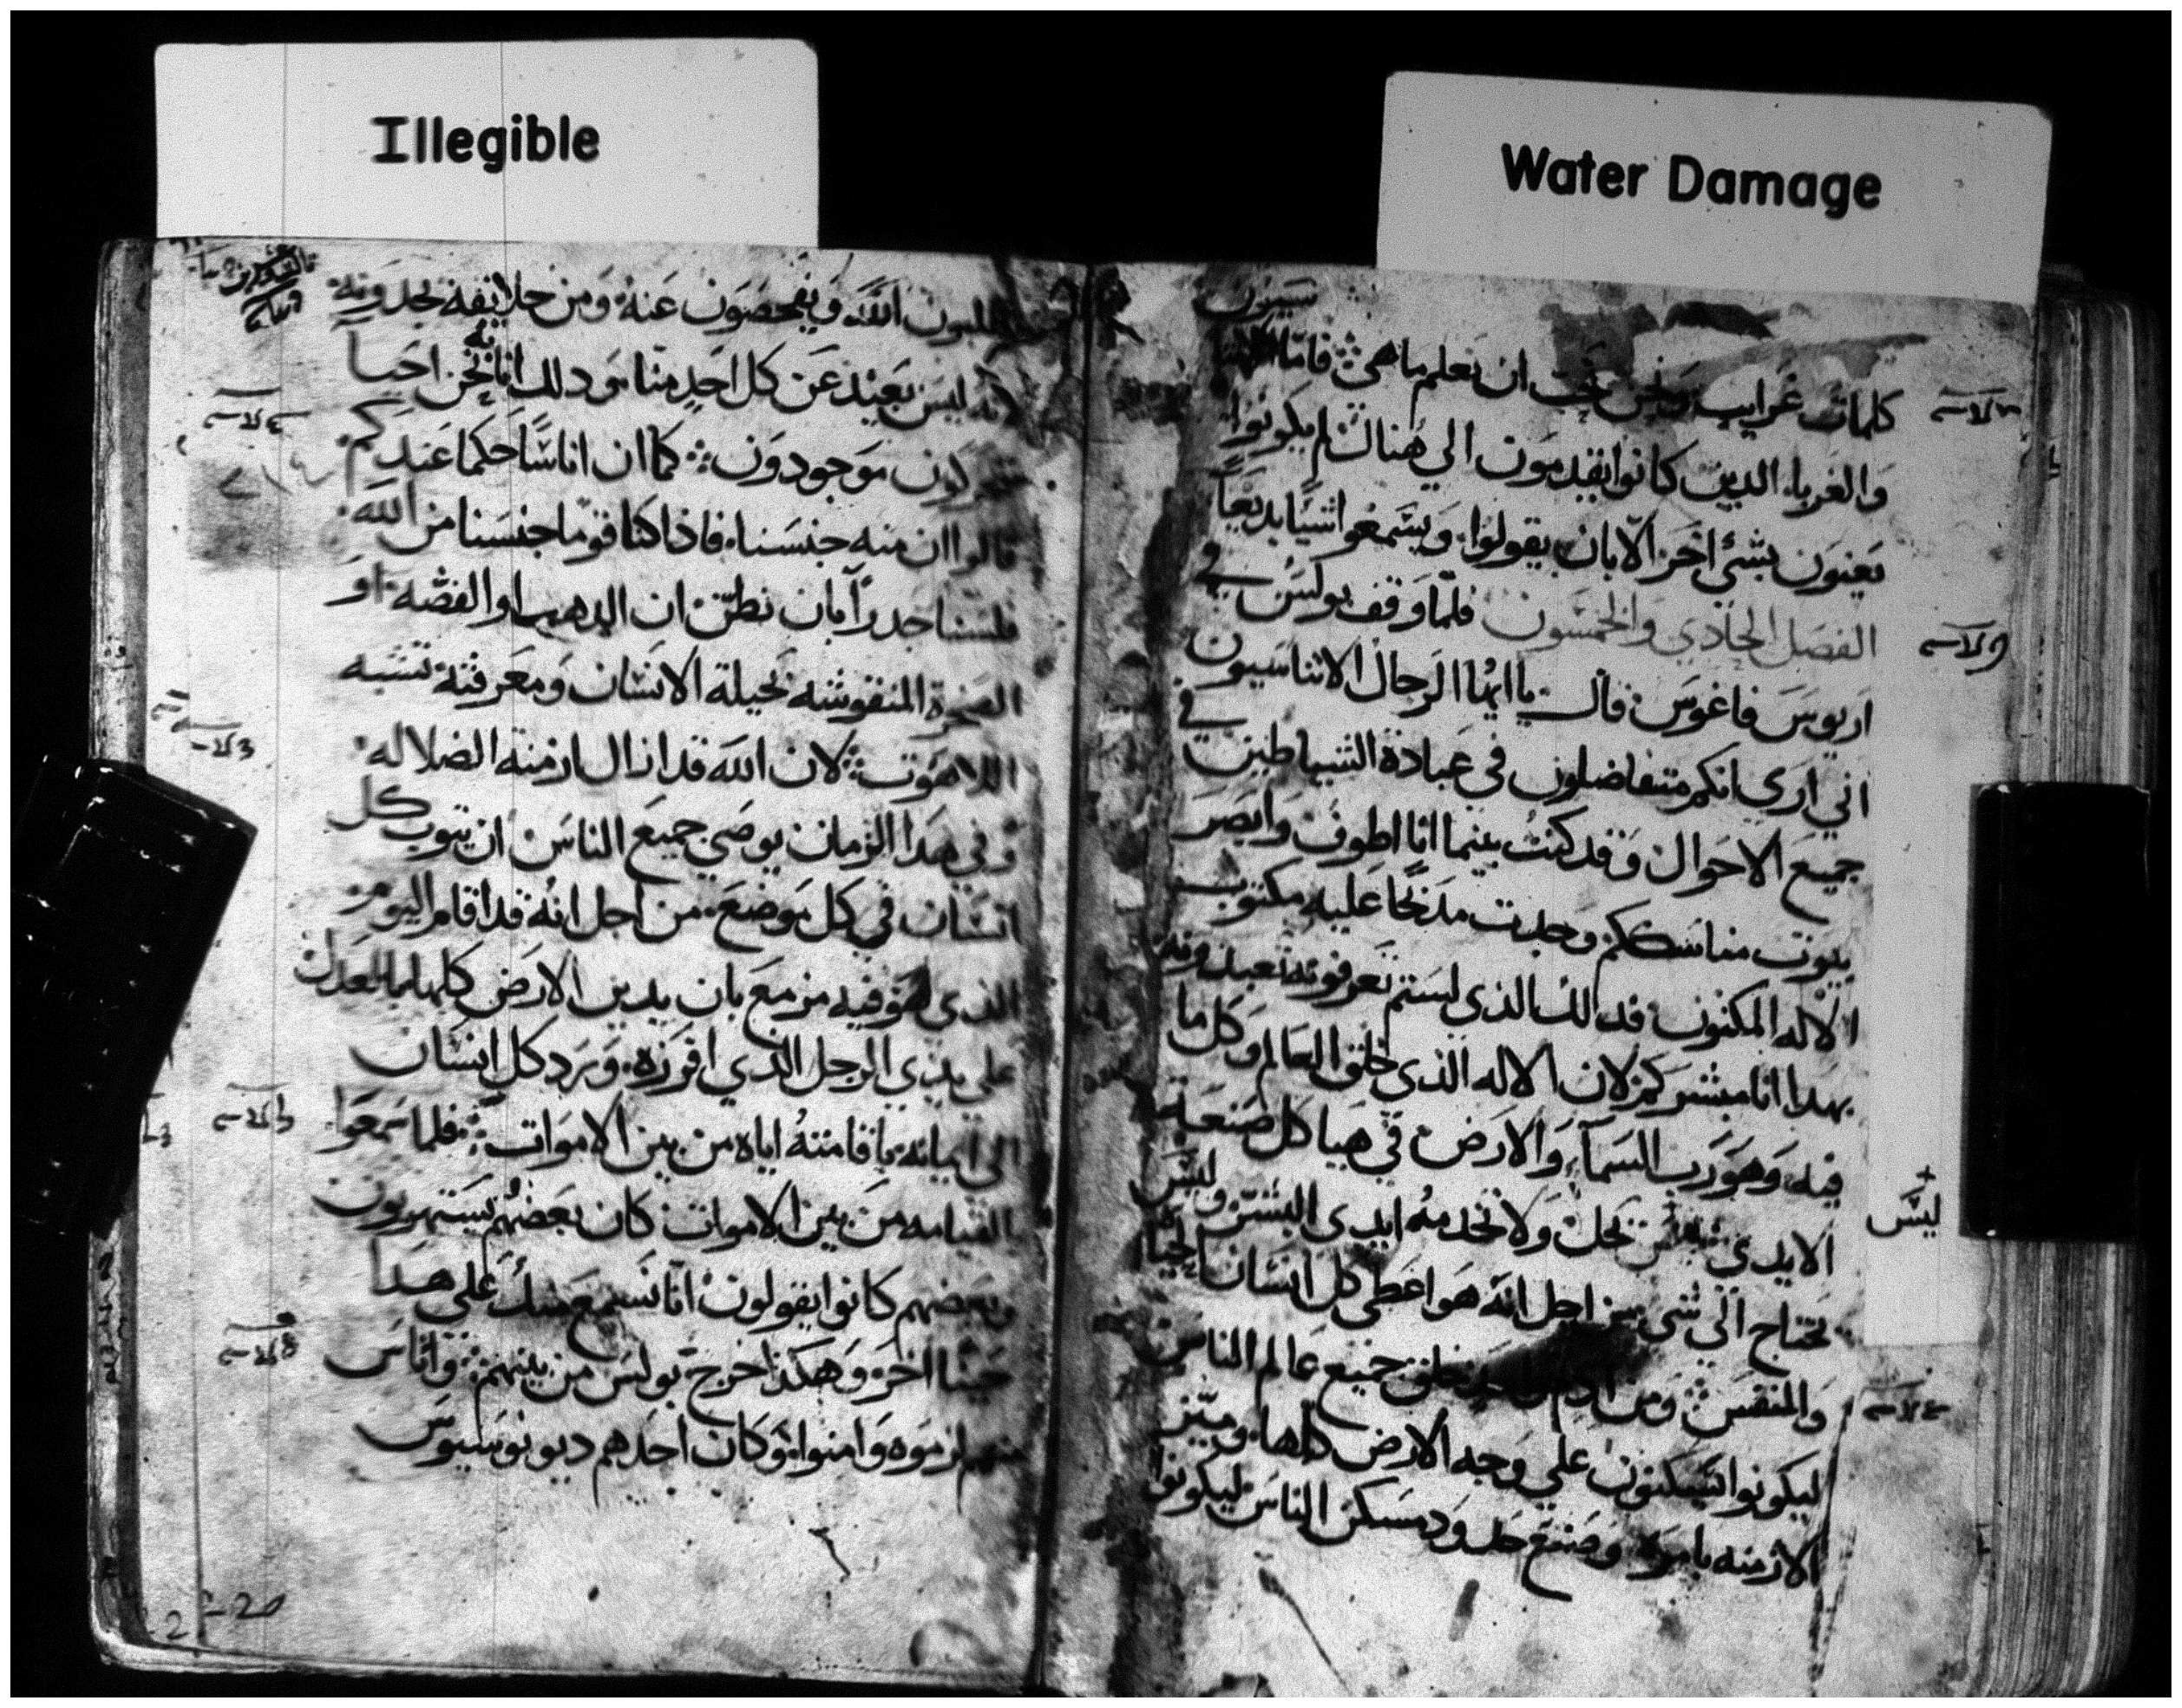 Illegible
Water Damage
كلمات غرايب ونحن نحب ان نعلم ما هي فاما
والغرباء الدين كانوا يقدمون الي هناك لم يكونوا
يعنون بشئ اخر الا بان يقولوا ويسمعوا اشيا بديعاً
الفصل الحادي والخمسون فلما وقف بولس في
اريوس فاغوس قال يا ايها الرجال الاثناسيون
اني اري انكم متفاضلون في عبادة الشياطين في
جميع الاحوال وقد كنت بينما انا اطوف وابصر
بيوت مناسككم وجدت مدبحاً عليه مكتوب
الاله المكنون فدالك الذي لستم تعرفونه تعبدونه
بهدا انا مبشركم لان الاله الذي خلق العالم وكل ما
فيه وهو رب السمآء والارض في هيا كل صنعة
الايدي ليس يحل ولا تخدمه ايدي البشر وليس
ليس
يحتاج الي شي من اجل انه هو اعطي كل انسان الحياة
والنفس ومن خلق جميع عالم الناس
ليكونوا يسكنون علي وجه الارض كلها وميز
الازمنه بامره وصنع حدود مسكن الناس ليكونوا
يطلبون الله ويفحصون عنه ومن خلايقه يجدونه
لانه ليس بعيد عن كل احد منا ودلك انا به نحن احيا
ومتحركون موجودون كما ان اناساً حكما عندكم
قالوا ان منه جنسنا فاذا كنا قوما جنسنا من الله
فلسنا جدراً بان نظن ان الدهب او الفضه او
الصخرة المنقوشه بحيلة الانسان ومعرفته تشبه
اللاهوت لان الله قد ازال ازمنة الضلاله
وفي هدا الزمان يوصي جميع الناس ان يتوب كل
انسان في كل موضع من اجل انه قد اقام اليوم
الذي هو فيه مزمع بان يدين الارض كلها بالعدل
علي يدي الرجل الذي افرزه ورد كل انسان
الي ايمانه باقامته اياه من بين الاموات فلما سمعوا
القيامه من بين الاموات كان بعضهم يستهزيون
وبعضهم كانوا يقولون انا نسمع منك علي هدا
حينا اخر وهكذا خرج بولس من بينهم واناس
منهم لزموه وامنوا وكان احدهم ديونوسيوس